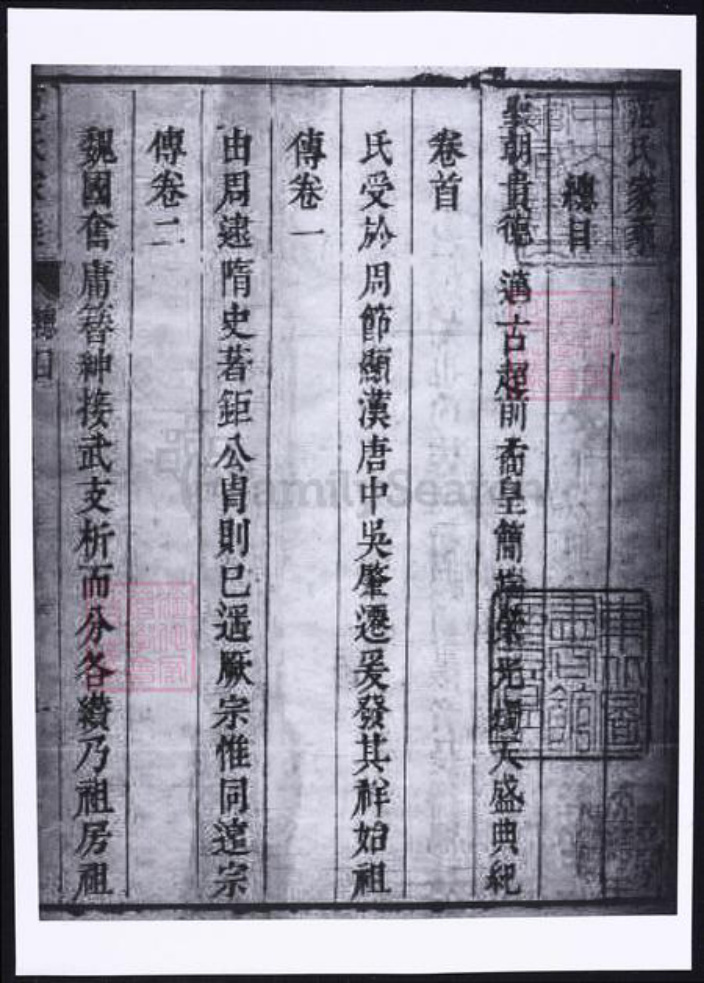 范氏家乘
總目
聖朝貴德邁古超前矞皇簡端榮光燭天盛典紀
卷首
氏受於周節顯漢唐中吳肇遷爰發其祥始祖
傳卷一
由周逮隋史著鉅公胄則已遥厥宗惟同遠宗
傳卷二
魏國奮庸簪紳接武支析而分各纘乃祖房祖
總目
FamilySearch